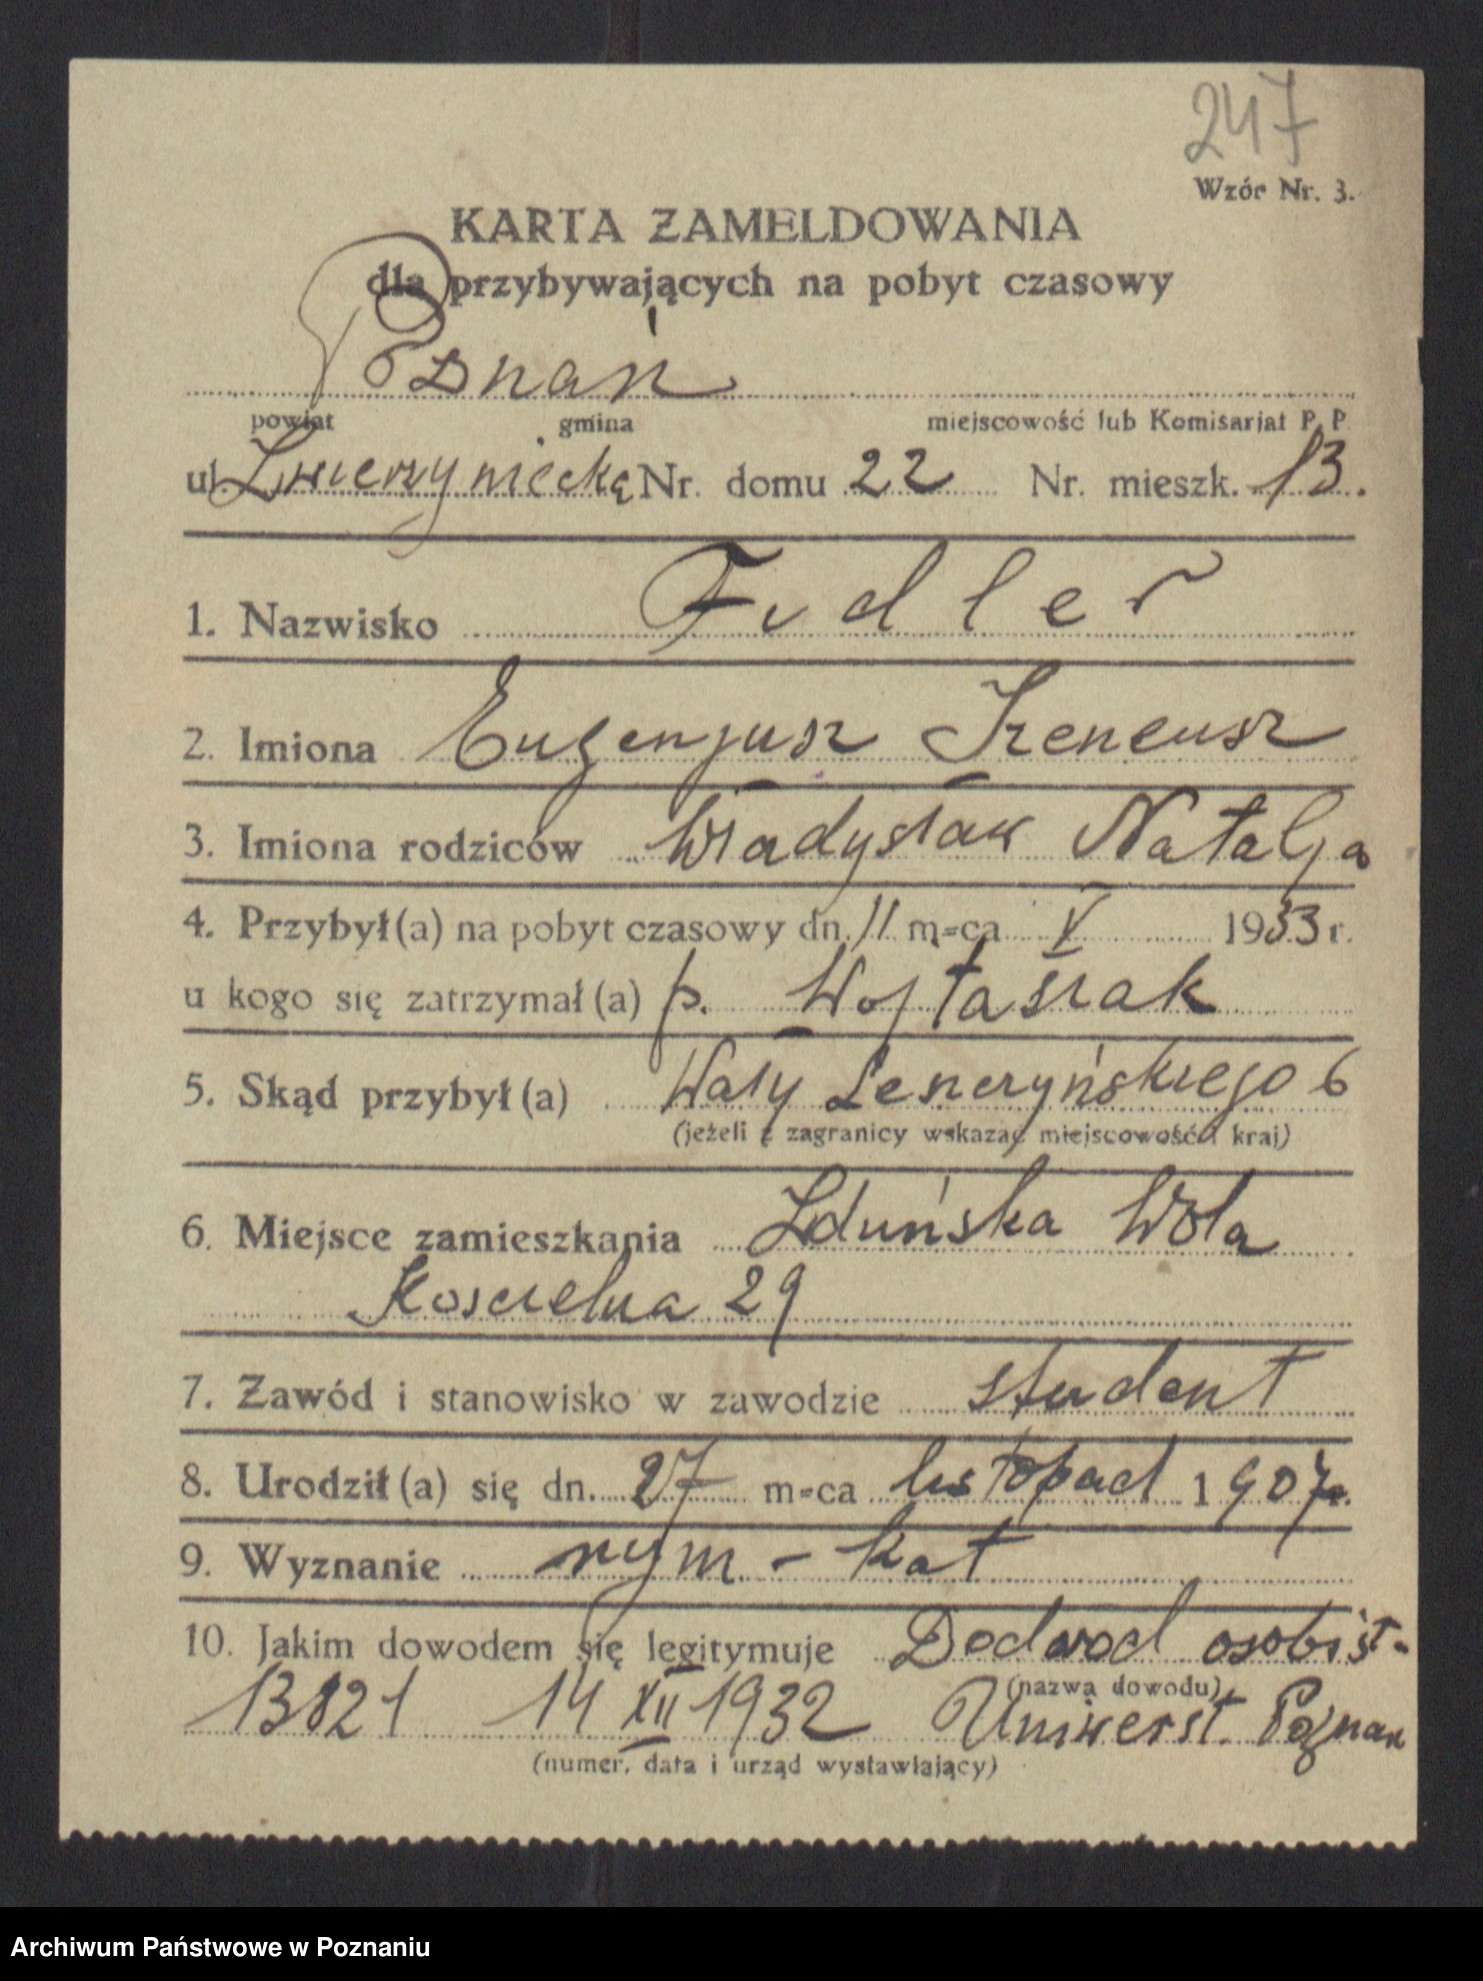 247
Wzór Nr. 3.
KARTA ZAMELDOWANIA
dla przybywających na pobyt czasowy
Poznań
powiat gmina miejscowość lub Komisarjat P. P.
ul. Zwierzyniecka Nr. domu 22 Nr. mieszk. 13.
1. Nazwisko Fidler
2. Imiona Eugenjusz Ireneusz
3. Imiona rodziców Władysław Natalja
4. Przybył(a) na pobyt czasowy dn. 11 m-ca V 1933 r.
u kogo się zatrzymał(a) p. Wojtasiak
5. Skąd przybył(a) Wały Leszczyńskiego 6
(jeżeli z zagranicy wskazać miejscowość i kraj)
6. Miejsce zamieszkania Zduńska Wola
Koscielna 29
7. Zawód i stanowisko w zawodzie student
8. Urodził(a) się dn. 27 m-ca listopad 1907 r.
9. Wyznanie rzym - kat
10. Jakim dowodem się legitymuje Dodwod osobist.
(nazwa dowodu)
13821 14 XII 1932 Uniwerst. Poznan
(numer, data i urząd wystawiający)
Archiwum Państwowe w Poznaniu